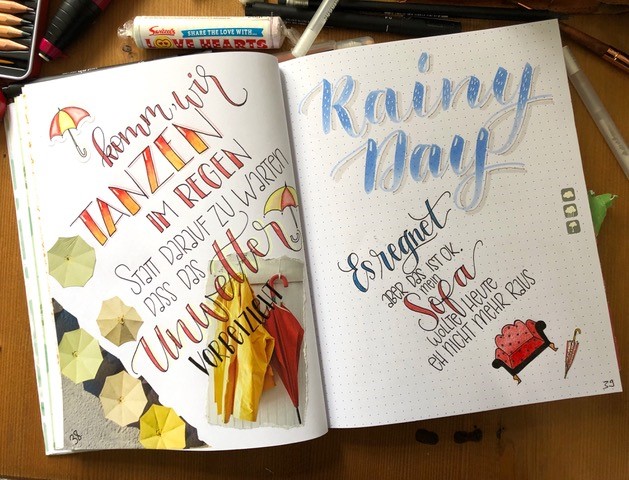 Swizzels
SHARE THE LOVE WITH...
LOVE HEARTS
komm, wir
TANZEN
IM REGEN
STATT DARAUF ZU WARTEN
DASS DAS
Unwetter
VORBEIZIEHT
38
Rainy
Day
Es regnet
ABER DAS IST OK.
mein
Sofa
WOLLTE HEUTE
EH NICHT MEHR RAUS
39